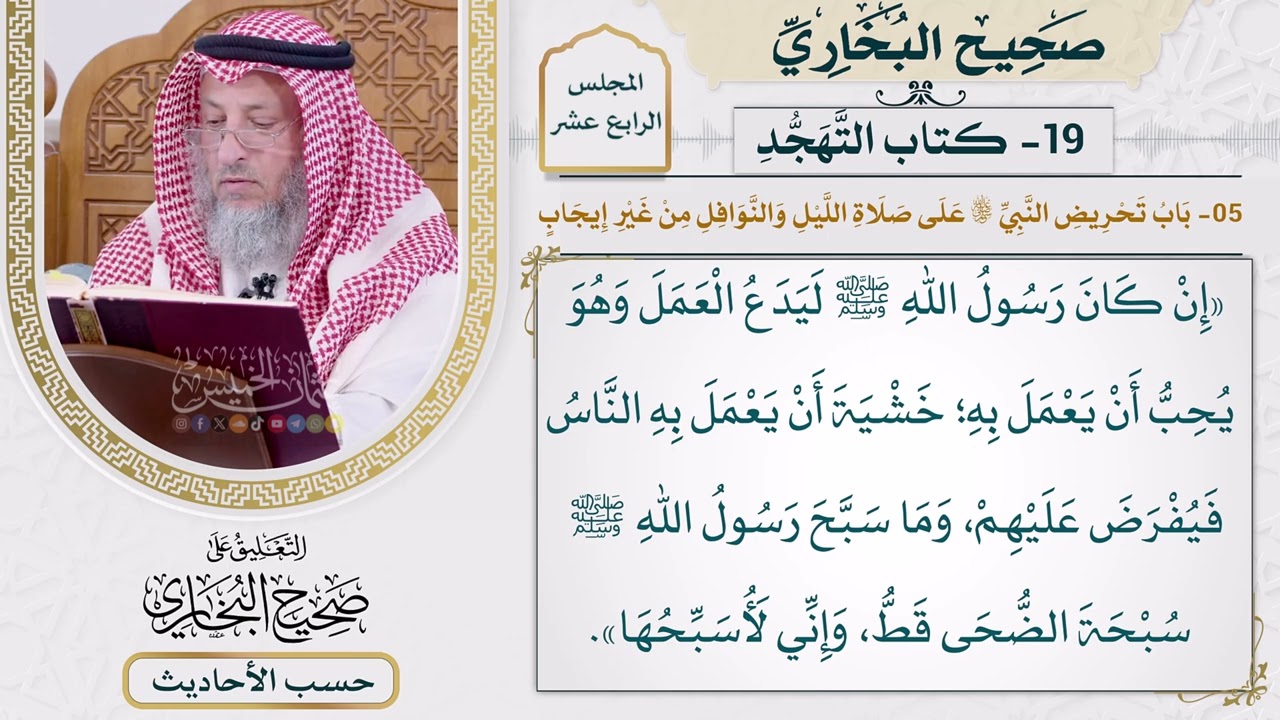 صَحِيح البُخَارِيِّ
المجلس
الرابع عشر
19- كتاب التَّهَجُّدِ
05- بَابُ تَحْرِيضِ النَّبِيِّ ﷺ عَلَى صَلَاةِ اللَّيْلِ وَالنَّوَافِلِ مِنْ غَيْرِ إِيجَابٍ
«إِنْ كَانَ رَسُولُ اللهِ ﷺ لَيَدَعُ الْعَمَلَ وَهُوَ
يُحِبُّ أَنْ يَعْمَلَ بِهِ؛ خَشْيَةَ أَنْ يَعْمَلَ بِهِ النَّاسُ
فَيُفْرَضَ عَلَيْهِمْ، وَمَا سَبَّحَ رَسُولُ اللهِ ﷺ
سُبْحَةَ الضُّحَى قَطُّ، وَإِنِّي لَأُسَبِّحُهَا».
عثمان الخميس
التَّعْلِيقُ عَلَى
صَحِيحِ البُخَارِي
حسب الأحاديث